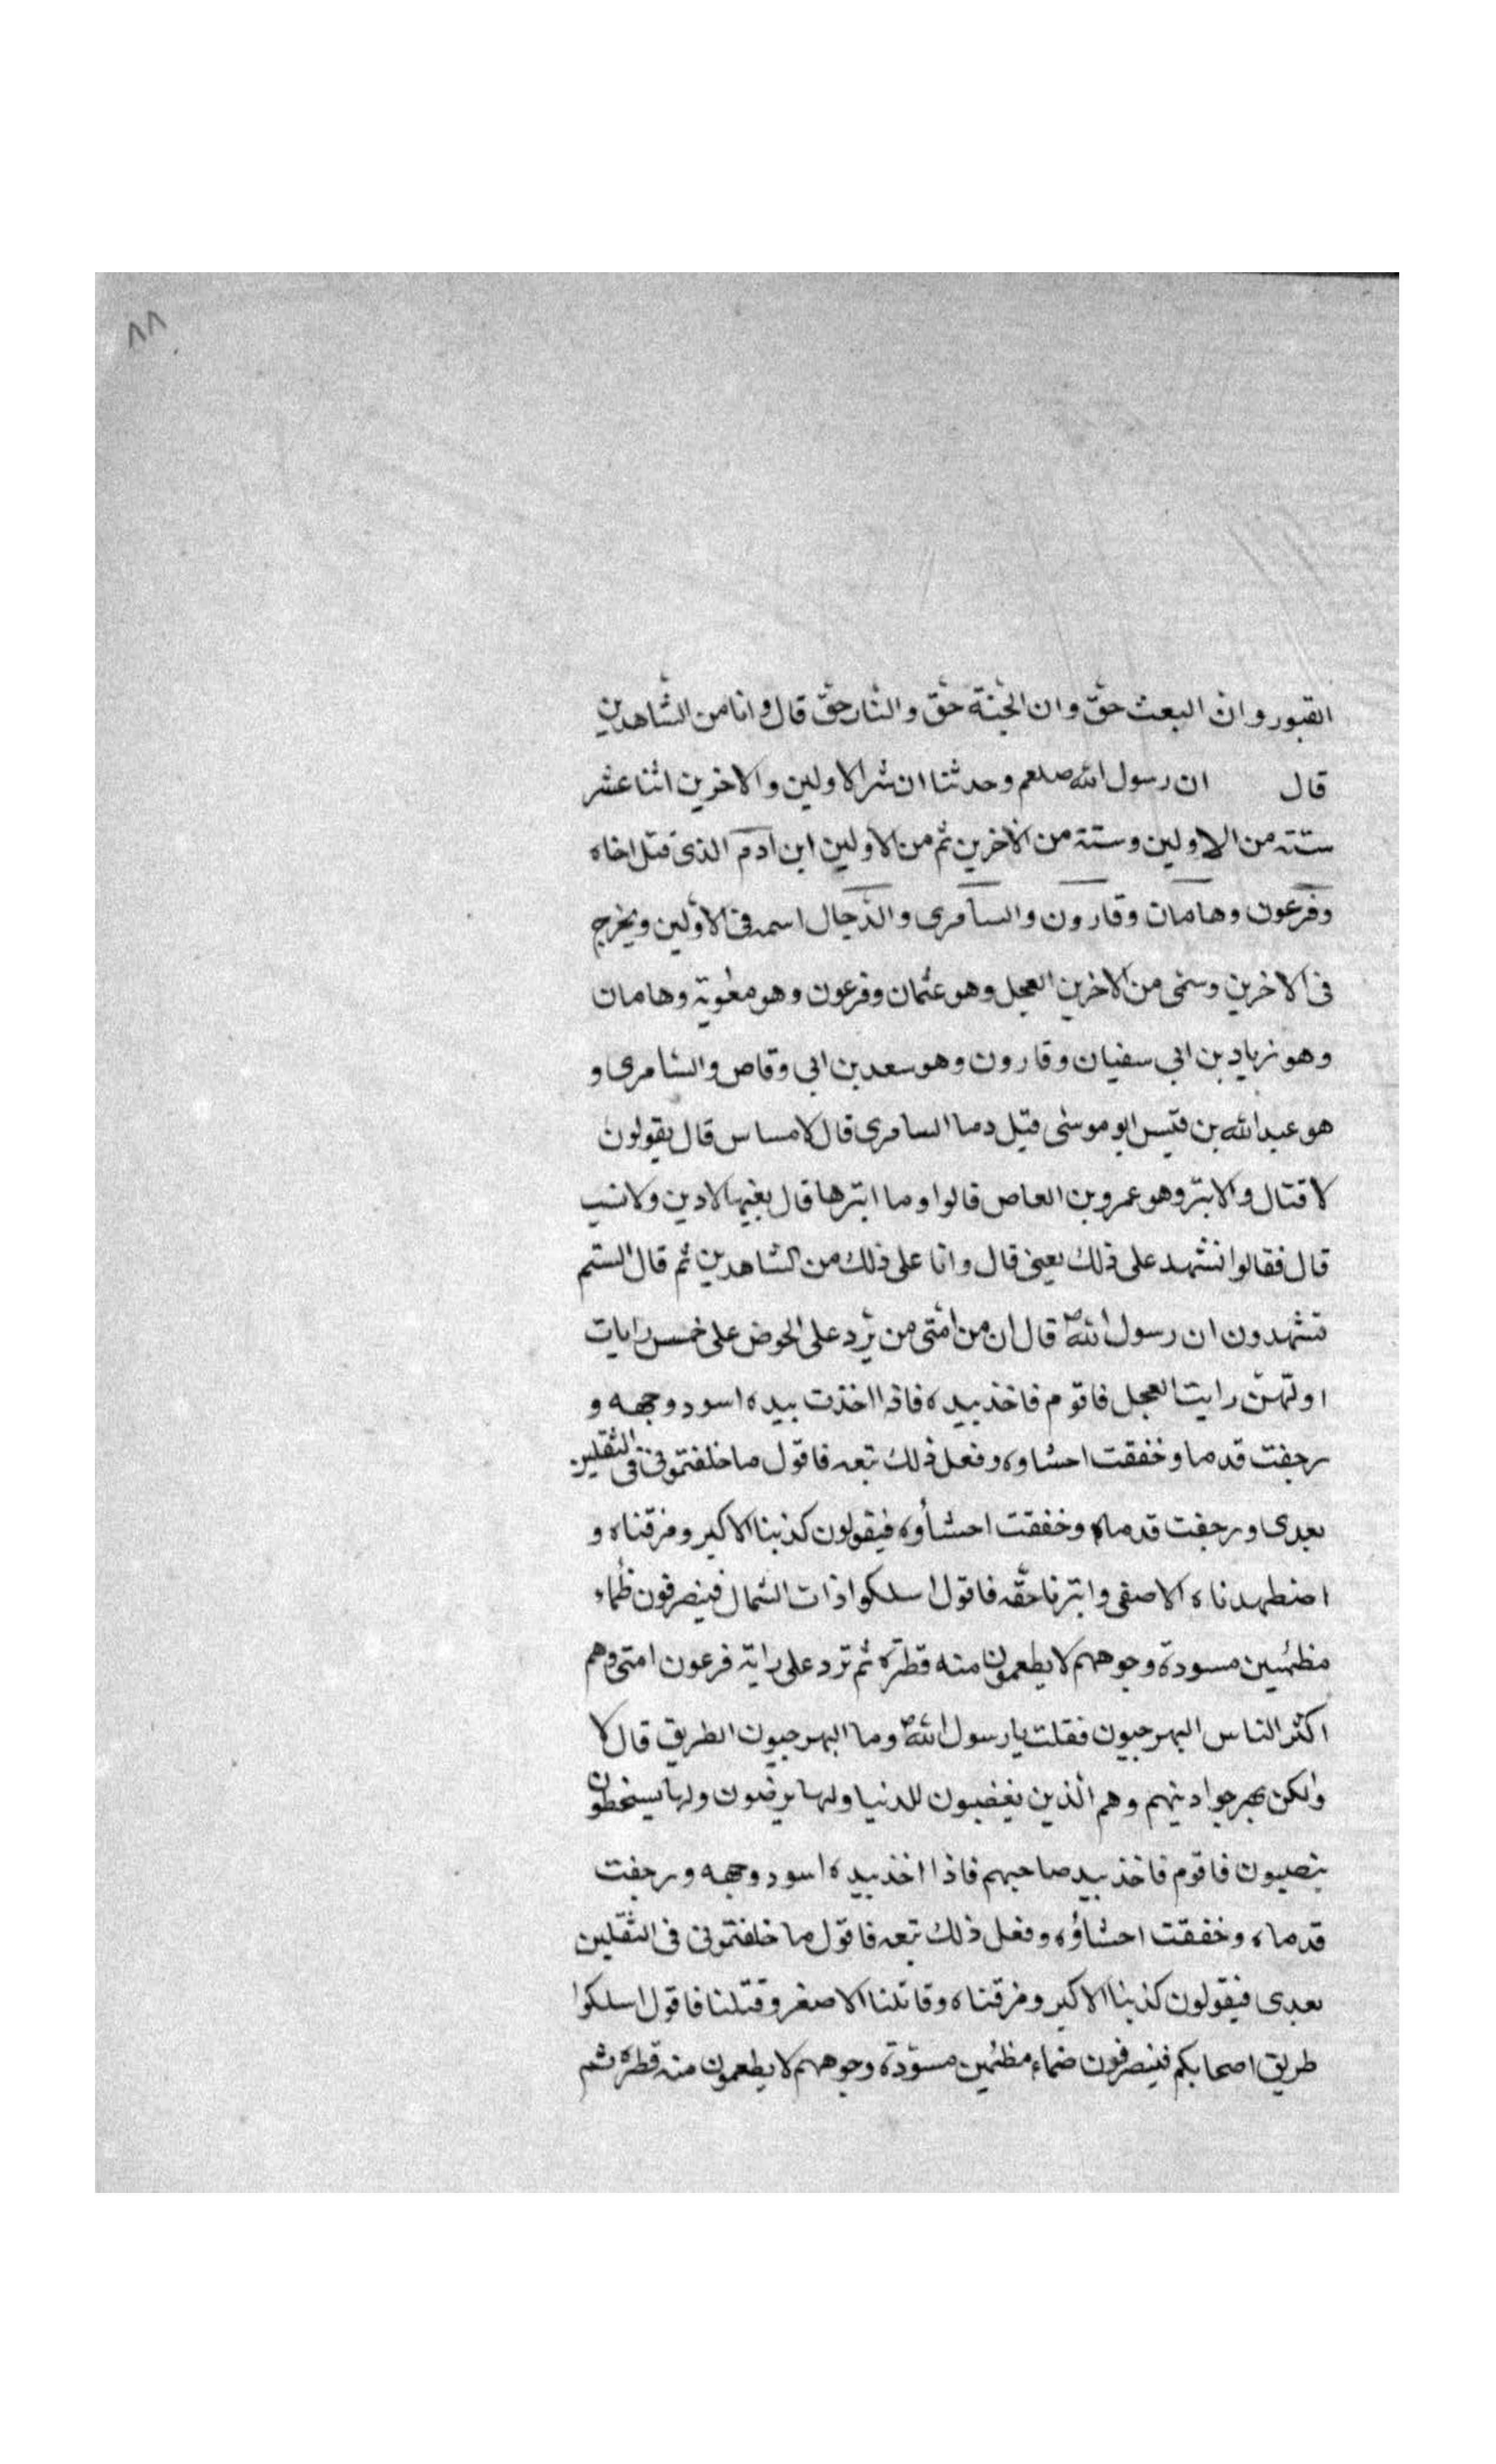 ٨٨
القبور وان البعث حقّ وان الجنة حق والنار حقّ قال وانا من الشاهدين
قال ان رسول الله صلعم وحدثنا ان شر الاولين والاخرين اثنا عشر
ستة من الاولين وستة من الاخرين ثم من الاولين ابن ادم الذى قتل اخاه
وفرعون وهامان وقارون والسامرى والدّجال اسمه فى الاوّلين ويخرج
فى الاخرين وستى من الاخرين العجل وهو عثمان وفرعون وهو معٰوية وهامان
وهو زياد بن ابى سفيان وقارون وهو سعد بن ابى وقاص والسامرى و
هو عبد الله بن قيس ابو موسى قيل وما السامرى قال لا مساس قال يقولون
لا قتال والابتر وهو عمرو بن العاص قالوا وما ابترها قال بغيها لا دين ولا نسب
قال فقالوا نشهد على ذلك يعنى قال وانا على ذلك من الشاهدين ثم قال الستم
تشهدون ان رسول اللهؐ قال ان من امّتى من يرد على الحوض على خمس رايات
اولهنّ رايت العجل فاقوم فاخذ بيده فاذا اخذت بيده اسود وجهه و
رجفت قدما وخفقت احشاوه وفعل ذلك تبعه فاقول ما خلفتمونى فى الثقلين
بعدى ورجفت قدماه وخفقت احشاؤه فيقولون كذبنا الاكبر ومزقناه و
اضطهدناه الاصغى وابترنا حقّه فاقول اسلكوا ذات الشمال فينصرفون ظماء
مظمئين مسودة وجوههم لا يطعمون منه قطرة ثم ترد على راية فرعون امتى وهم
اكثر الناس البهرجيون فقلت يا رسول اللهؐ وما البهرجيون الطريق قال لا
ولكن بهرجوا دينهم وهم الذين يغضبون للدنيا ولها يرضون ولها يسخطون
ينصبون فاقوم فاخذ بيد صاحبهم فاذا اخذ بيده اسود وجهه ورجفت
قدماه وخفقت احشاؤه وفعل ذلك تبعه فاقول ما خلفتمونى فى الثقلين
بعدى فيقولون كذبنا الاكبر ومزقناه وقاتلنا الاصغر وقتلنا فاقول اسلكوا
طريق اصحابكم فينصرفون ضماء مظمئين مسوّدة وجوههم لا يطعمون منه قطره ثم